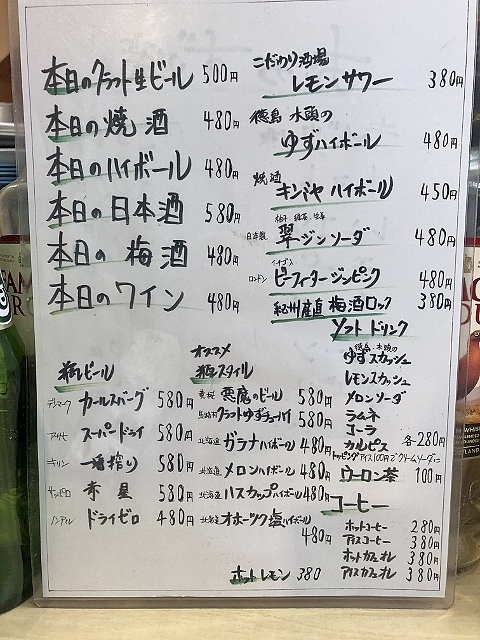 本日のクラフト生ビール 500円
本日の焼酒 480円
本日のハイボール 480円
本日の日本酒 580円
本日の梅酒 480円
本日のワイン 480円
こだわり酒場
レモンサワー 380円
徳島 木頭の
ゆずハイボール 480円
焼酒
キンミヤハイボール 450円
柚子 緑茶 生姜
日本製 翠ージンソーダ 480円
イチゴ入
ロンドン ビーフィータージンピンク 480円
紀州産直梅酒ロック 380円
瓶ビール
デンマーク カールスバーグ 580円
アサヒ スーパードライ 580円
キリン 一番搾り 580円
サッポロ 赤星 580円
ノンアル ドライゼロ 480円
オススメ
瓶スタイル
悪魔のビール 580円
馬路村 クラフトゆずチューハイ 580円
北海道 ガラナハイボール 480円
北海道 メロンハイボール 480円
北海道 ハスカップハイボール 480円
北海道 オホーツク塩ハイボール
480円
ホットレモン 380
ソフトドリンク
徳島・木頭の
ゆずスカッシュ
レモンスカッシュ
メロンソーダ
ラムネ
コーラ
カルピス 各280円
トッピングアイス100円でクリームソーダに
ウーロン茶 100円
コーヒー
ホットコーヒー 280円
アイスコーヒー 380円
ホットカフェオレ 380円
アイスカフェオレ 380円